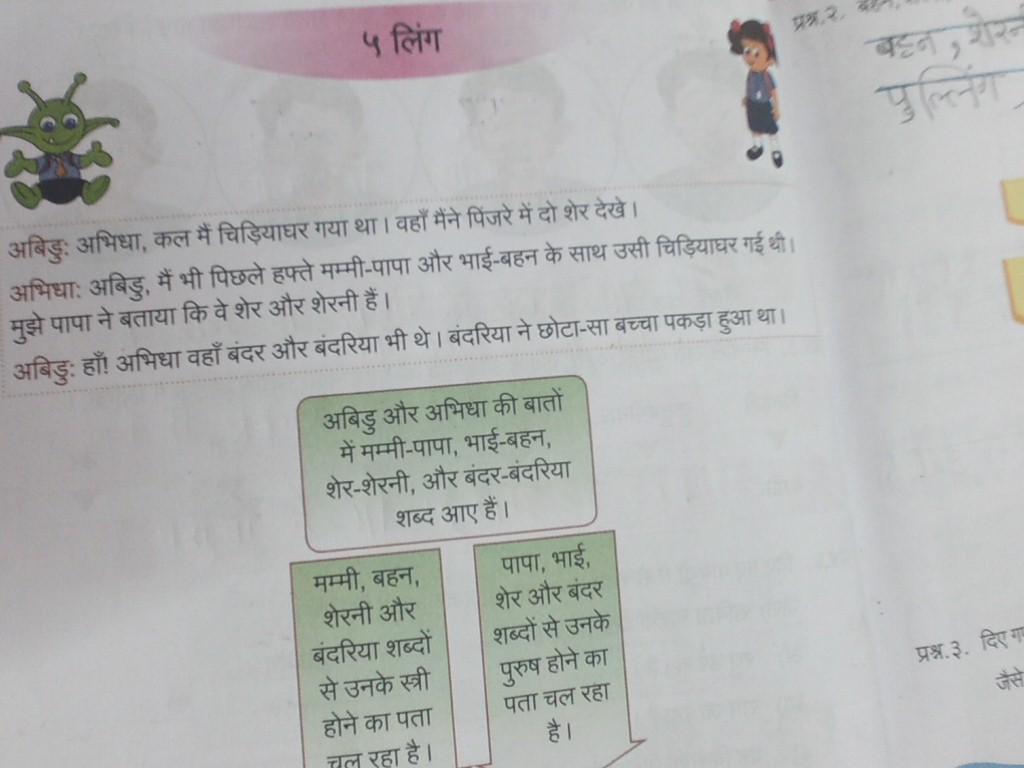 ५ लिंग
अबिडु: अभिधा, कल मैं चिड़ियाघर गया था। वहाँ मैंने पिंजरे में दो शेर देखे।
अभिधा: अबिडु, मैं भी पिछले हफ्ते मम्मी-पापा और भाई-बहन के साथ उसी चिड़ियाघर गई थी।
मुझे पापा ने बताया कि वे शेर और शेरनी हैं।
अबिडु: हाँ! अभिधा वहाँ बंदर और बंदरिया भी थे। बंदरिया ने छोटा-सा बच्चा पकड़ा हुआ था।
अबिडु और अभिधा की बातों
में मम्मी-पापा, भाई-बहन,
शेर-शेरनी, और बंदर-बंदरिया
शब्द आए हैं।
मम्मी, बहन,
शेरनी और
बंदरिया शब्दों
से उनके स्त्री
होने का पता
चल रहा है।
पापा, भाई,
शेर और बंदर
शब्दों से उनके
पुरुष होने का
पता चल रहा
है।
प्रश्न.२. बहन,
बहन, शेरनी
पुल्लिंग
प्रश्न.३. दिए
जैसे